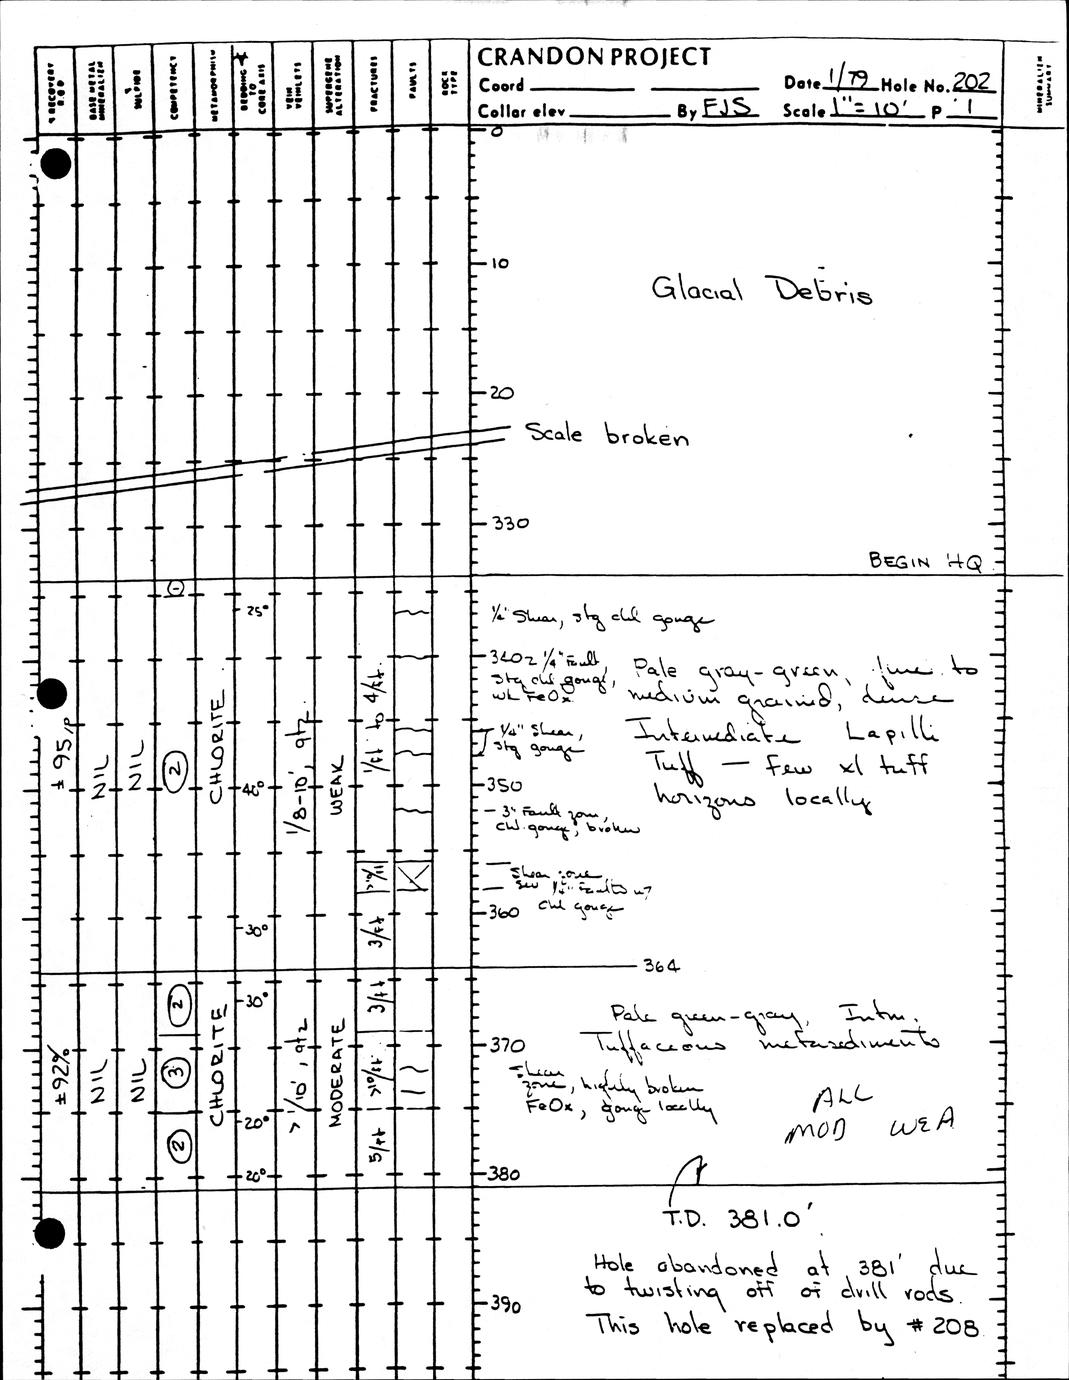 % RECOVERY R.Q.D
BASE METAL MINERALIZ'N
% SULPIDE
COMPETENCY
METAMORPHISM
BEDDING TO CORE AXIS
VEIN VEINLETS
SUPERGENE ALTERATION
FRACTURES
FAULTS
ROCK TYPE
CRANDON PROJECT
Coord
Date 1/79 Hole No. 202
Collar elev By FJS Scale 1"=10' P 1
MINERALIZ'N SUMMARY
0
10
Glacial Debris
20
Scale broken
330
BEGIN HQ
25°
1/4" Shear, stg chl gouge
3402 1/4" Fault,
stg chl gouge,
wk FeOx
Pale gray-green, fine to
medium grained, dense
Intermediate Lapilli
Tuff — Few xl tuff
horizons locally
1/4" Shear,
stg gouge
± 95%
NIL
NIL
2
CHLORITE
40°
1/8-10', qtz
WEAK
1/ft to 4/ft
350
3" Fault zone,
chl gouge, broken
>10/1
Shear zone,
Sev 1/4" Faults w/
chl gouge
360
30°
3/ft
364
± 92%
NIL
NIL
2
3
2
CHLORITE
30°
20°
20°
> 1/10', qtz
MODERATE
3/ft
>10/ft
5/ft
Pale green-gray, Intm.
Tuffaceous metasediments
370
Shear
zone, highly broken
FeOx, gouge locally
ALL
MOD WEA
380
T.D. 381.0'
Hole abandoned at 381' due
to twisting off of drill rods.
390
This hole replaced by # 208